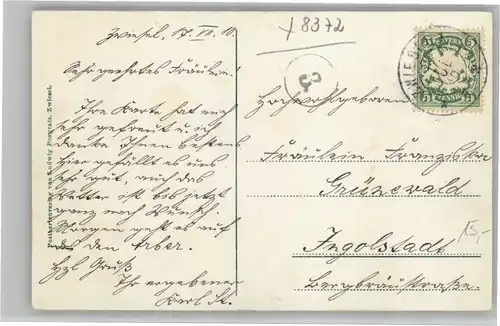 Zwiesel, 17. VII. 10.
Sehr geehrtes Fräulein!
Ihre Karte hat mich
sehr gefreut u. ich
danke Ihnen bestens.
Hier gefällt es uns
sehr gut, auch das
Wetter ist bis jetzt
ganz nach Wunsch.
Morgen geht es auf
den Arber.
Hzl. Gruß
Ihr ergebener
Karl St.
Postkartenverlag von Ludwig Pongratz, Zwiesel.
+8372
3
5 5
PFENNIG
Hochwohlgeboren
Fräulein Franziska
Grünewald
Ingolstadt
Bergbräustraße.
15,-